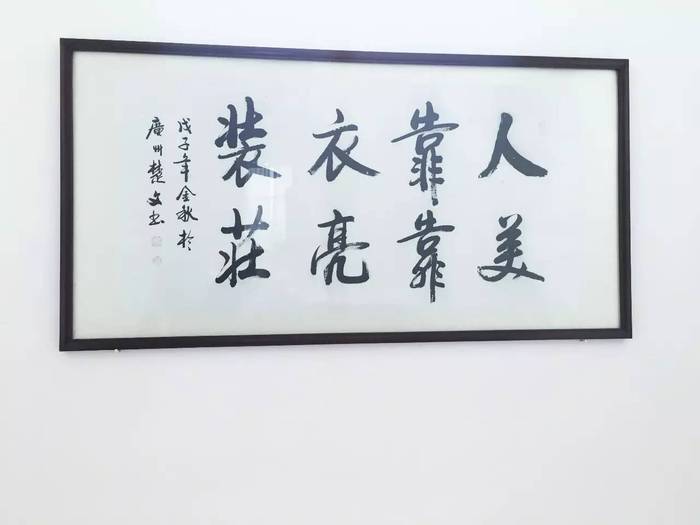 人靠衣装
美靠亮莊
戊子年金秋於
廣州楚文书